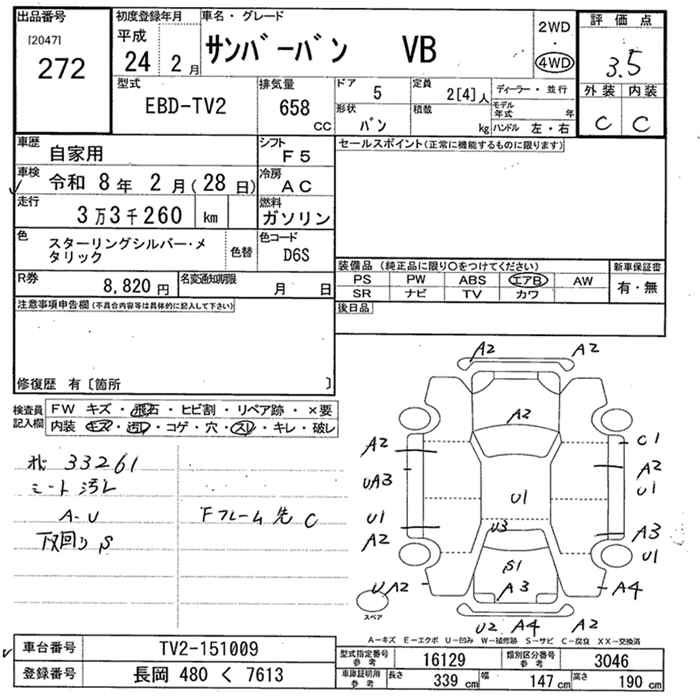 出品番号
[2047]
272
初度登録年月
平成
24 2月
車名・グレード
サンバーバン VB
2WD
・
4WD
評価点
3.5
外装 内装
C C
型式
EBD-TV2
排気量
658
CC
ドア
5
定員
2[4]人
形状
バン
積載
kg
ディーラー・並行
モデル年式 年
ハンドル 左・右
車歴
自家用
シフト
F5
車検
令和 8年 2月(28日)
冷房
AC
走行
3万3千260 km
燃料
ガソリン
色
スターリングシルバー・メ
タリック
色替
色コード
D6S
R券
8,820円
名変通知期限
月 日
セールスポイント(正常に機能するものに限ります)
装備品(純正品に限り○をつけてください)
新車保証書
PS PW ABS エアB AW
SR ナビ TV カワ
有・無
後日品
注意事項申告欄(不具合内容等は具体的に記入して下さい)
修復歴 有〔箇所 〕
検査員
記入欄
FW キズ・飛石・ヒビ割・リペア跡・×要
内装 キズ・汚れ・コゲ・穴・スレ・キレ・破レ
33261
シート汚レ
A-U
下回りS
Fフレーム先C
A2 A2
A2
A2
UA3
U1
A2
C1
A2
U1
A3
U1
U1
U3
S1
A3
UA2
A4
U2 A4 A2
スペア
A-キズ E-エクボ U-凹み W-補修跡 S-サビ C-腐食 XX-交換済
車台番号
TV2-151009
登録番号
長岡 480 く 7613
型式指定番号
参考
16129
類別区分番号
参考
3046
車庫証明用
参考
長さ
339 cm
幅
147 cm
高さ
190 cm